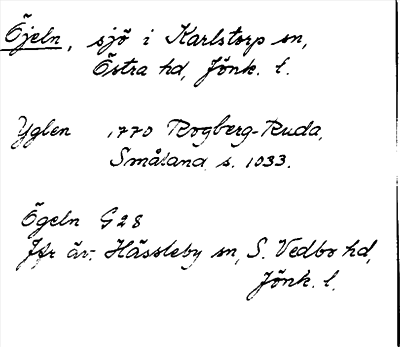 Öjeln, sjö i Karlstorp sn,
Östra hd, Jönk. l.
Yglen 1770 Rogberg-Ruda,
Småland s. 1033.
Ögeln G28
Jfr äv. Hässleby sn, S. Vedbo hd,
Jönk. l.